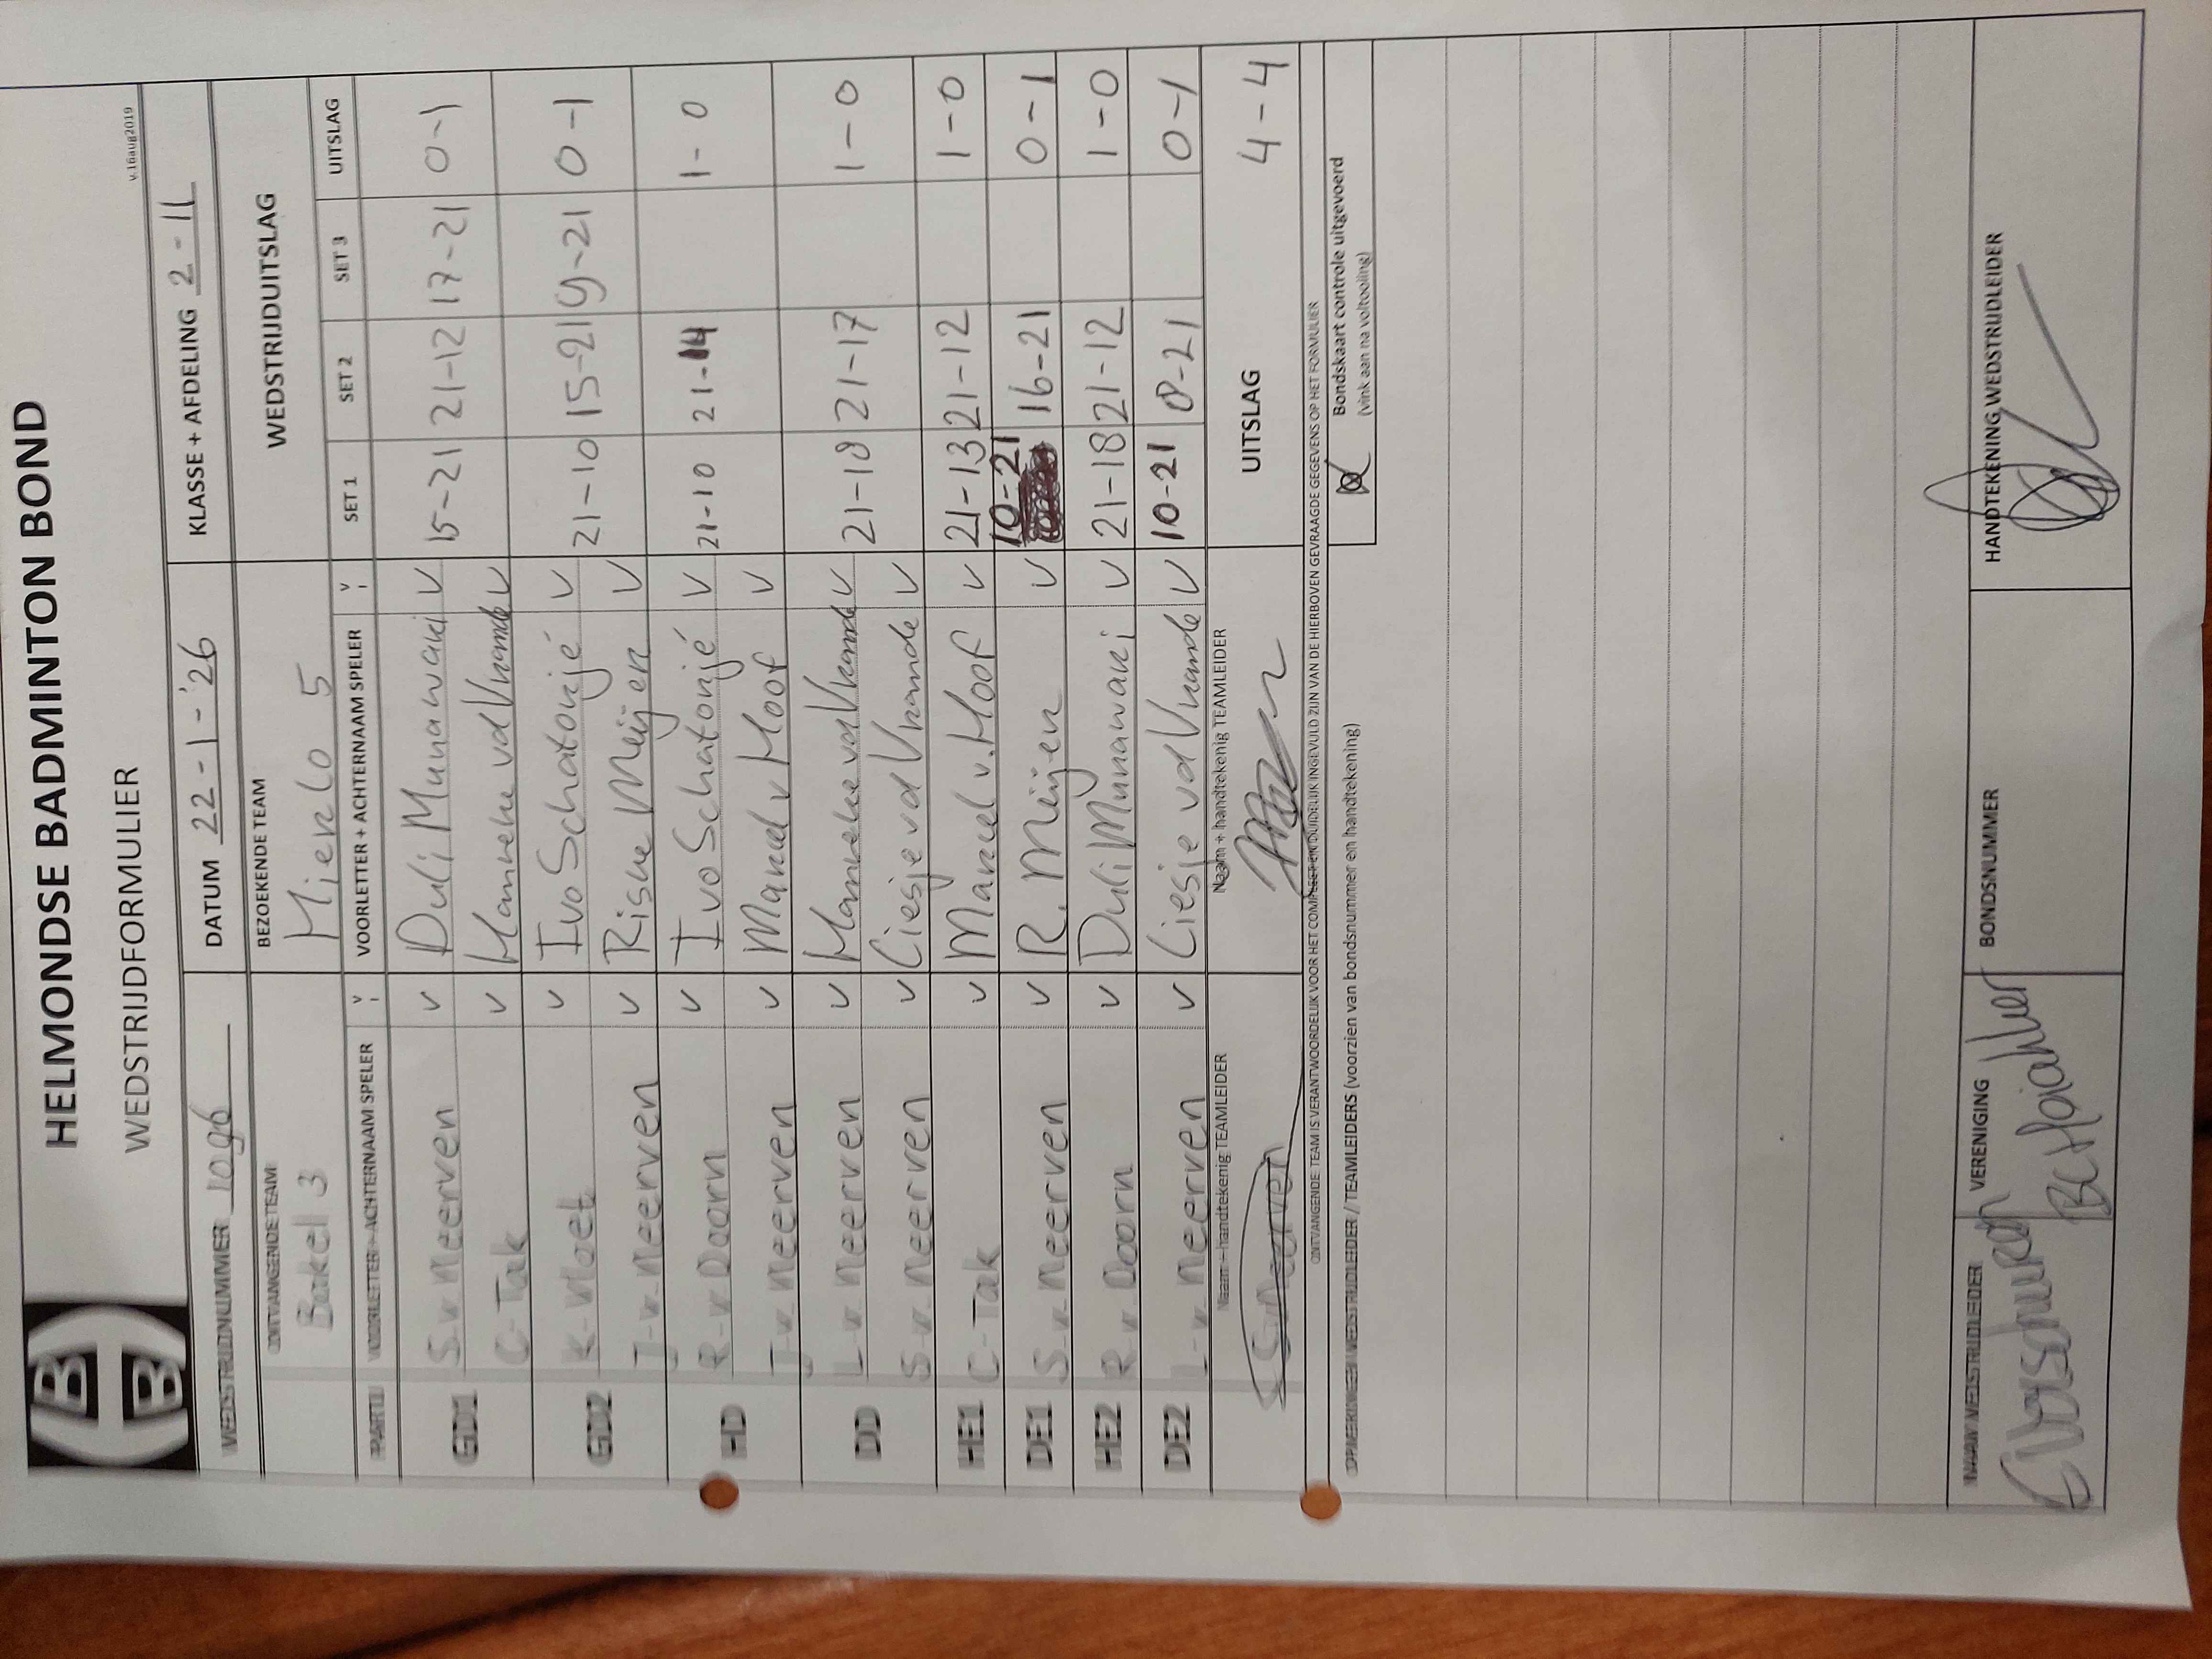 HELMONDSE BADMINTON BOND
WEDSTRIJDFORMULIER
v.16aug2019
WEDSTRIJDNUMMER 1096 DATUM 22-1-'26 KLASSE + AFDELING 2-11
ONTVANGENDE TEAM BEZOEKENDE TEAM WEDSTRIJDUITSLAG
Bakel 3 Mierlo 5
PARTIJ VOORLETTER + ACHTERNAAM SPELER V VOORLETTER + ACHTERNAAM SPELER V SET 1 SET 2 SET 3 UITSLAG
GD1 S.v. Meerven v Duli Munawari v 15-21 21-12 17-21 0-1
C. Tak v Hanneke vd Vrande v
GD2 K. v Ivo Schatorjé v 21-10 15-21 9-21 0-1
J. v. Meerven v Riske Meijer v
HD R. v Doorn v Ivo Schatorjé v 21-10 21-14 1-0
J. v. Meerven v Marcel v Hoof v
DD L. v. Meerven v Hanneke vd Vrande v 21-18 21-17 1-0
S. v. Meerven v Liesje vd Vrande v
HE1 C. Tak v Marcel v. Hoof v 21-13 21-12 1-0
DE1 S. v. Meerven v R. Meijer v 10-21 16-21 0-1
HE2 R. v. Doorn v Duli Munawari v 21-18 21-12 1-0
DE2 L. v. Meerven v Liesje vd Vrande v 10-21 8-21 0-1
Naam + handtekenig TEAMLEIDER Naam + handtekenig TEAMLEIDER UITSLAG 4-4
S. Meerven
ONTVANGENDE TEAM IS VERANTWOORDELIJK VOOR HET COMPLEET EN DUIDELIJK INGEVULD ZIJN VAN DE HIERBOVEN GEVRAAGDE GEGEVENS OP HET FORMULIER
OPMERKINGEN WEDSTRIJDLEIDER / TEAMLEIDERS (voorzien van bondsnummer en handtekening) Bondskaart controle uitgevoerd
(vink aan na voltooiing)
NAAM WEDSTRIJDLEIDER VERENIGING BONDSNUMMER HANDTEKENING WEDSTRIJDLEIDER